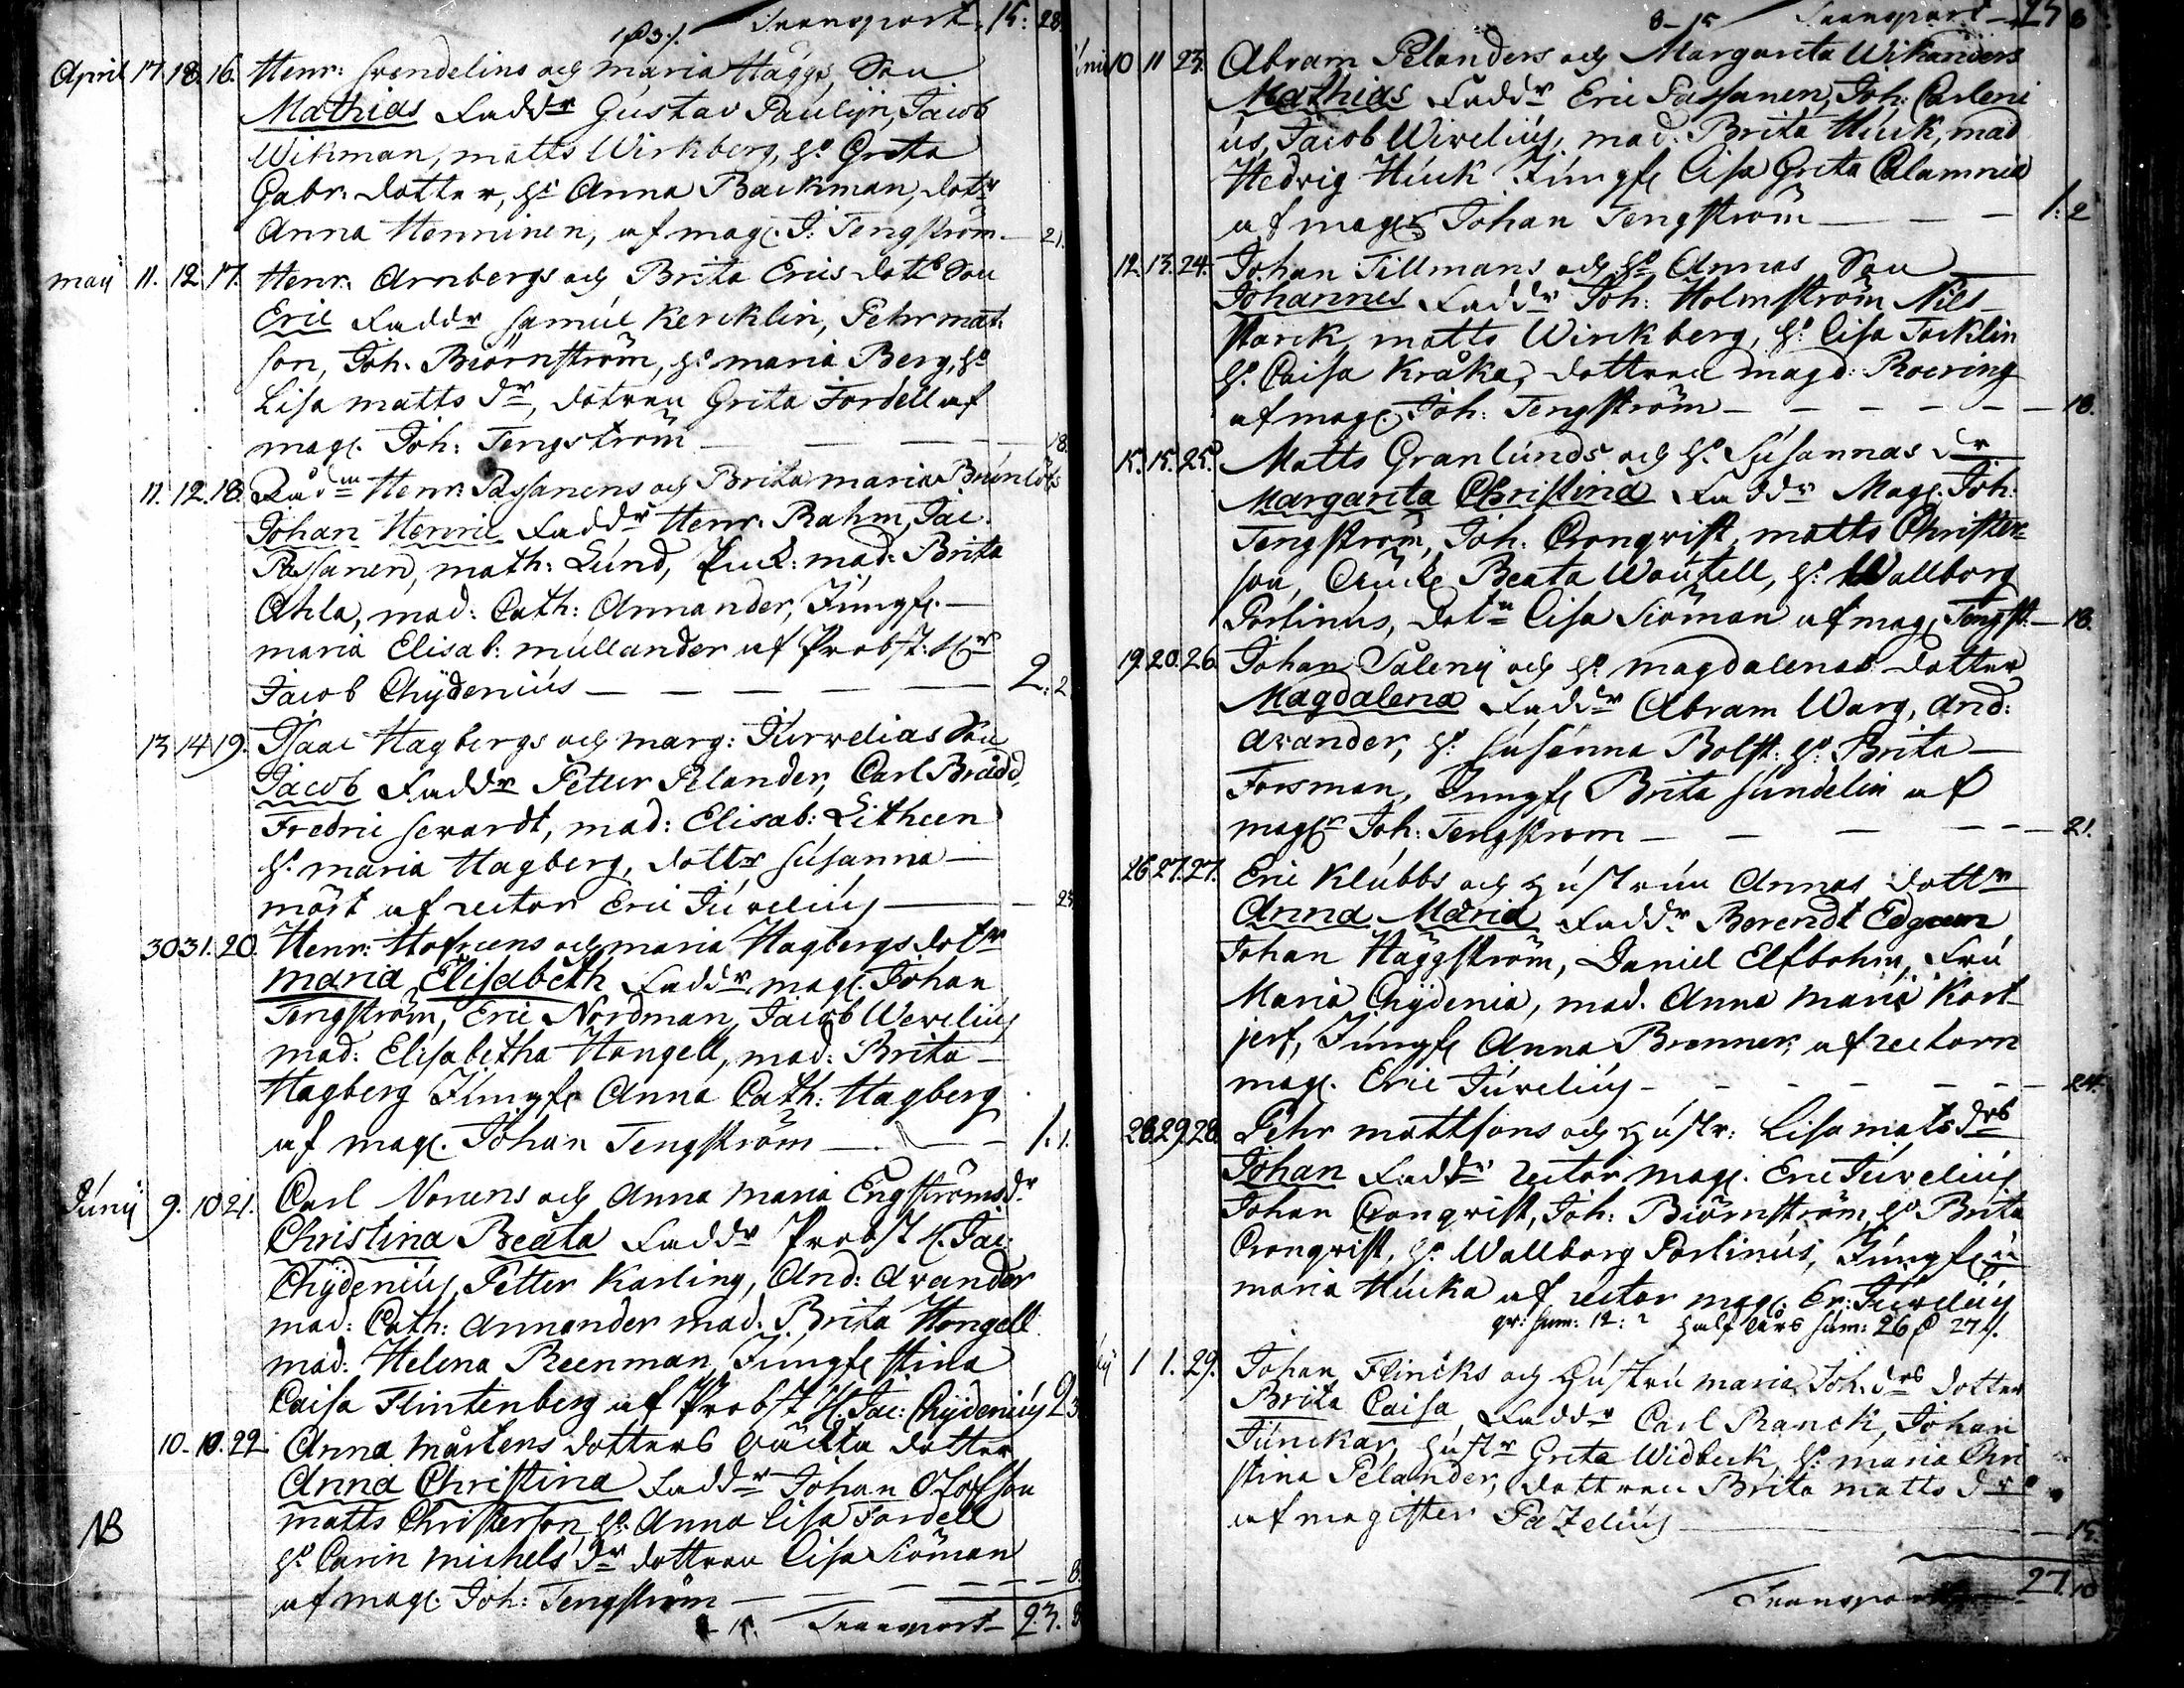 Transport. 15: 28
April 17 18. 16. Henr: Svendelins och Maria Häggs Son
Mathias Faddr Gustav Paulijn, Jacob
Wikman, matts Wirkberg, h: Greta
Gabr: dotter, h: Anna Backman, dotr
Anna Henninen, af mag. J: Tengström — 21.
maij 11. 12. 17. Henr: Arnbergs och Brita Erics dottr Son
Eric Faddr Samuel Kercklin, Pehr mat
son, Joh. Biörnström, h: maria Berg, h:
Lisa matts dr, dotren Greta Fordell af
mag. Joh: Tengström — 18.
11. 12. 18. Rådm Henr: Passanens och Brita maria
Johan Henric Faddr Henr. Rahm, Jac.
Passanen, math: Lund, mad: Brita
Ahla, mad: Cath: Annander, Jungf. —
maria Elisab: mullander af Probst: Hr
Jacob Chydenius — 2: 2
13 14 19. Isaac Hagbergs och marg: Jurvelias Son
Jacob Faddr Petter Pelander, Carl Brådd.
Fredric Sevardt, mad: Elisab: Litheen
h: maria Hagberg, dottr Susanna —
möst af rector Eric Juvelius — 23
30 31. 20. Henr: Hofreens och maria Hagbergs dotr
maria Elisabeth Faddr mag. Johan
Tengström, Eric Nordman, Jacob Wevelius
mad: Elisabetha Hongell, mad: Brita —
Hagberg Jungfr Anna Cath: Hagberg
af mag. Johan Tengström — 1. 1.
Junij 9. 10 21. Carl Norens och Anna Maria Engströms dr
Christina Beata Faddr Probst H. Jac:
Chydenius, Petter Karling, And: Avander
mad: Cath: Annander mad. Brita Hongell
mad: Helena Reenman, Jungfr Stina
Caisa Flintenberg af Probst H: Jac: Chydenius 2 3
10. 10. 22 Anna mårtens dotters oäckta dotter
Anna Christina Faddr Johan Olofson
matts Christerson h: Anna Lisa Fordell
NB
h: Carin michels dr dottren Lisa Siöman
af mag. Joh: Tengström — 8.
Transport — 23. 8
8 — 15 Transport — 23 8
10 11 23. Abram Pelanders och Margareta Wikanders
Mathias Faddr Eric Passanen, Joh: Carleni
us, Jacob Wivelius, mad. Brita Huck, mad
Hedvig Huck Jungfr Lisa Greta Calamnia
af magr Johan Tengström — 1: 2
12. 13. 24. Johan Tillmans och h: Annas Son
Johannes Faddr Joh: Holmström Nils
Starck, matts Wirckberg, h: Lisa Jocklin
h: Caisa Kråka, dottren magd: Roering
af mag. Joh: Tengström — 18.
15. 15. 25. Matts Granlunds och h: Susannas dr
Margareta Christina Faddr Mag. Joh:
Tengström, Joh: Cronqvist, matts Christer-
son, Beata h: Wallborg
Porlinus, dotr Lisa Siöman af mag. Tengst. — 18.
19. 20. 26 Johan Sålenij och h: magdalenas dotter
Magdalena Faddr Abram Warg, And:
Avander, h: Susanna Bolst: h: Brita —
Forsman, Jungfr Brita Sundelin af
magr Joh: Tengstrom — 21.
26 27. 27. Eric Klubbs och hustrun Annas dottr
Anna Maria Faddr Berendt Edgren
Johan Häggström, Daniel Elfbohm, Fru
Maria Chydenia, mad. Anna Maria Kort
jerf, Jungfr Anna Brenner, af rectorn
mag. Eric Juvelius — 24.
28. 29. 28. Pehr mattsons och hustr: Lisa mats drs
Johan Faddr rector mag. Eric Juvelius
Johan Cronqvist, Joh: Biörnström, h: Brita
Cronqvist, h: Wallborg Porlinus, Jungfrn
maria Hucka af rector mag. Er: Juvelius
qv: Sum: 12: 2 half års Sum: 26 27
1 1. 29. Johan Flincks och hustru maria Joh: drs dotter
Brita Caisa Faddr Carl Ranck, Johan
Junckar, hustr Greta Widbeck, h: maria Chri
stina Pelander, dottren Brita matts dr
af magister Pazelius — 15.
Transport — 27. 10